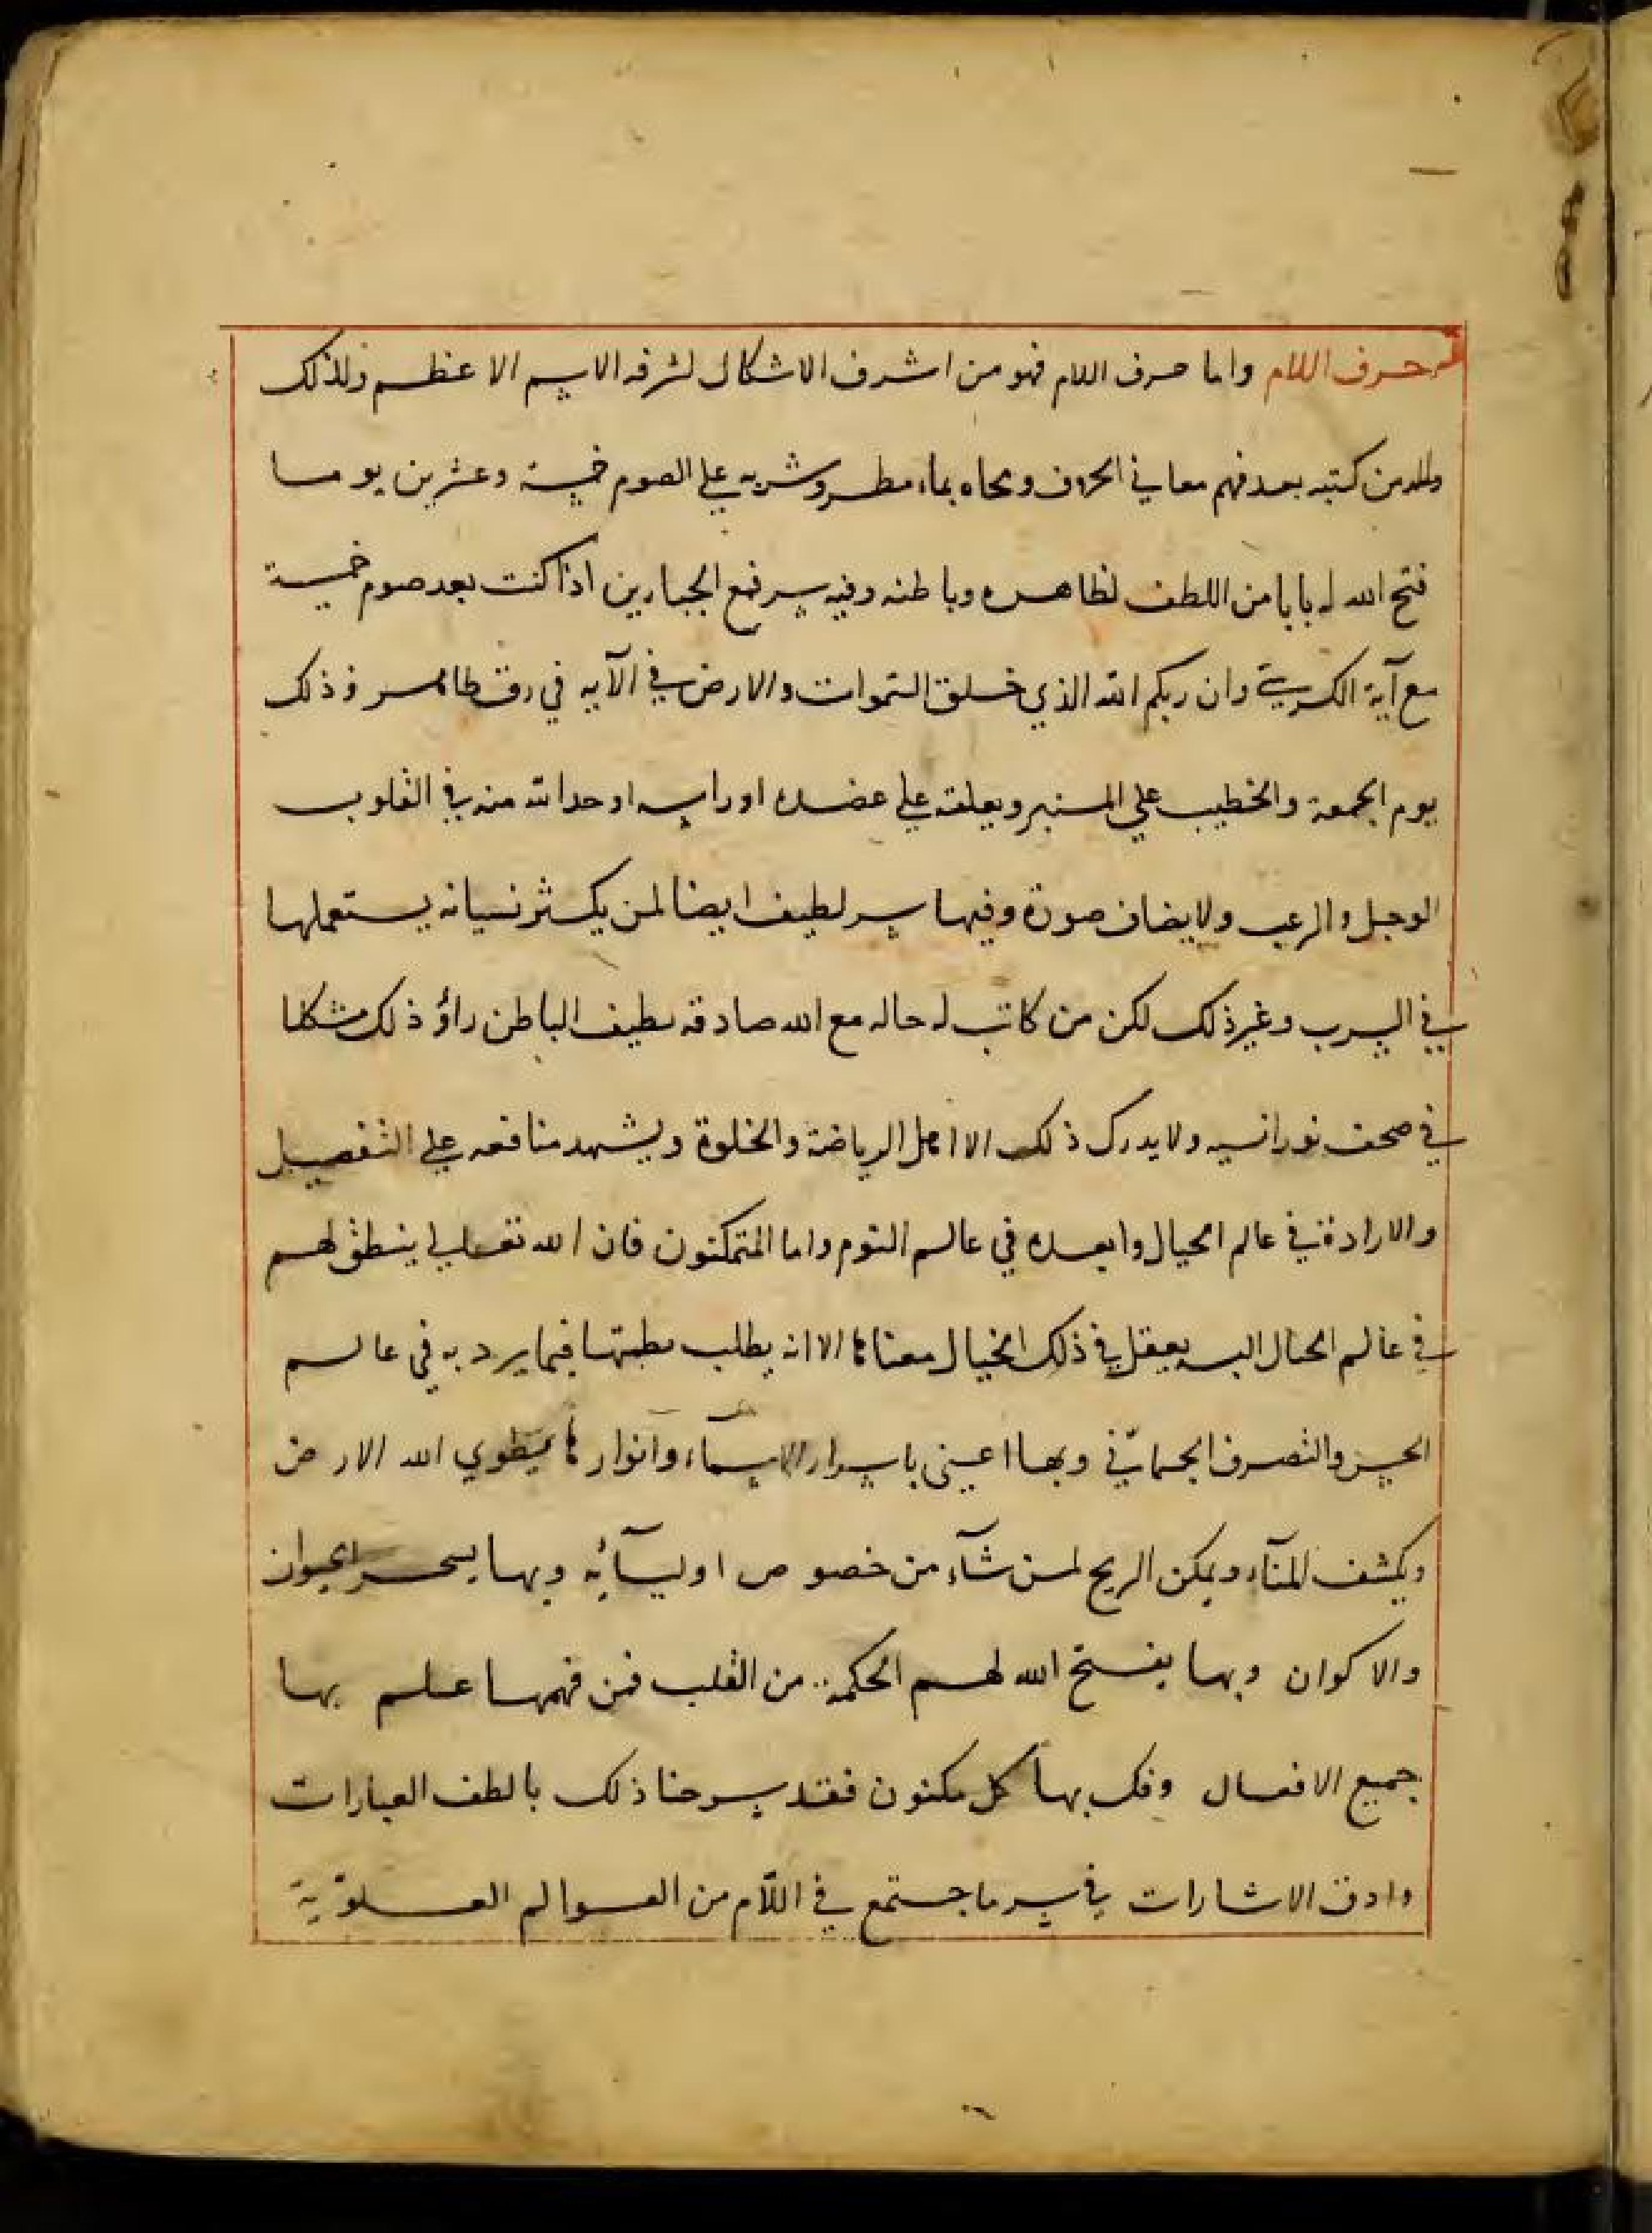 حرف اللام واما حرف اللام فهو من اشرف الاشكال لشرفه الاسم الاعظم ولذلك
من كتبه بعد فهم معاني الحروف ومحاه بماء مطر وشربه على الصوم خمسة وعشرين يوما
فتح الله له بابا من اللطف لظاهره وباطنه وفيه سر الجبارين اذا كنت بعد صوم خمسة
مع آية الكرسي وان ربكم الله الذي خلق السموات والارض في الآيه في رق طاهر وذلك
يوم الجمعة والخطيب على المنبر ويعلقه على عضده او راسه اوجد الله منه في القلوب
الوجل والرعب ولا يضاف صورة وفيها سر لطيف ايضا لمن يكثر نسيانه يستعملها
في السرب وغير ذلك لكن من كانت له حاله مع الله صادقه لطيف الباطن راؤ ذلك مشكلا
في صحف نورانيه ولا يدرك ذلك الا اهل الرياضة والخلوة ويشهد منافعه على التفصيل
والارادة في عالم الخيال وابعده في عالم النوم واما المتمكنون فان الله تعالى ينطق لهم
في عالم الخيال يعقل في ذلك الخيال معناها الا انه يطلب فيما يرد به في عالم
الحس والتصرف الجسماني وبها اعني باسرار الاسماء وانوارها يطوي الله الارض
ويكشف المآء ويمكن الريح لمن شآء من خصوص اوليآئه وبها يسخر الحيوان
والاكوان وبها يفتح الله لهم الحكمة من القلب فمن فهمها علم بها
جميع الافعال وفك بها كل مكنون فقد سرحنا ذلك بالطف العبارات
وادق الاشارات في سر ما جتمع في اللآم من العوالم العلوية